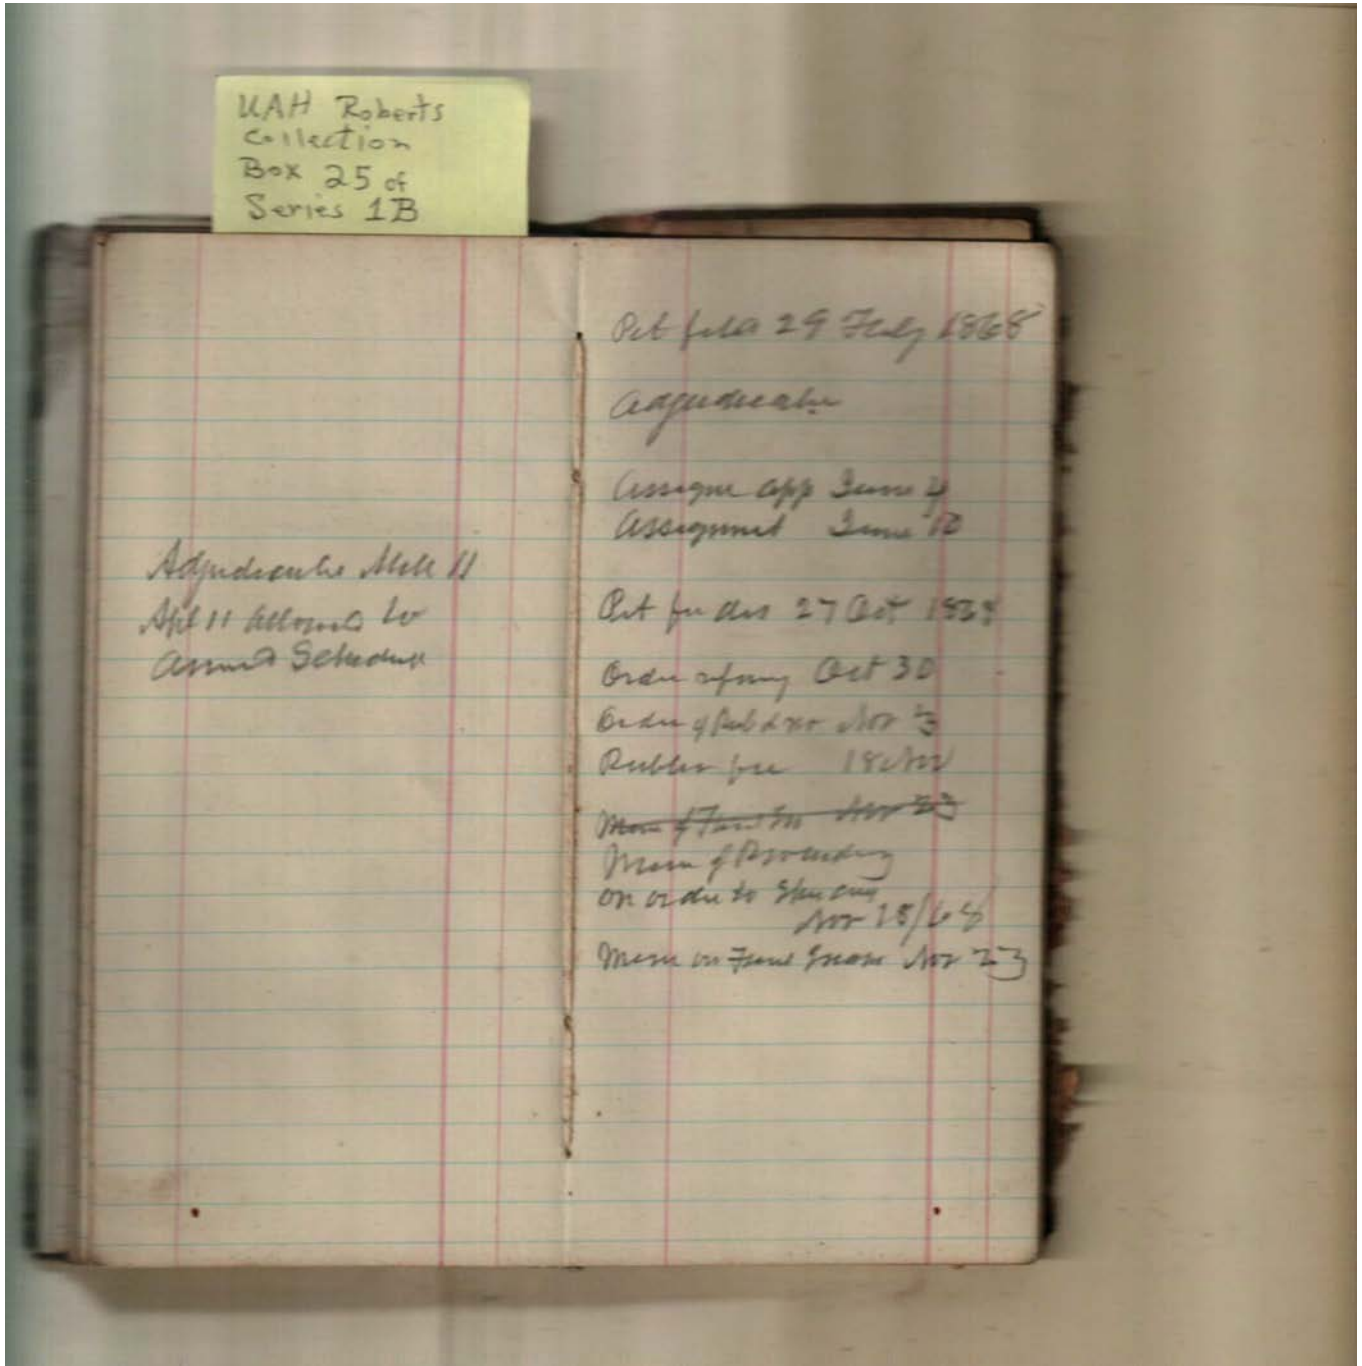 UAH Roberts
Collection
Box 25 of
Series 1B
Adjudicate Mch 11
Apl 11 allowed to
amend Schedule
Pet filed 29 Feby 1868
Adjudicate
Assigne app June 4
Assignmet June 10
Pet for dis 27 Oct
Order Oct 30
Order of Nov 3
18 Nov
Mem of Nov 23
Mem of Proceeding
on order to Shew
Nov 18/68
Mem on Nov 23